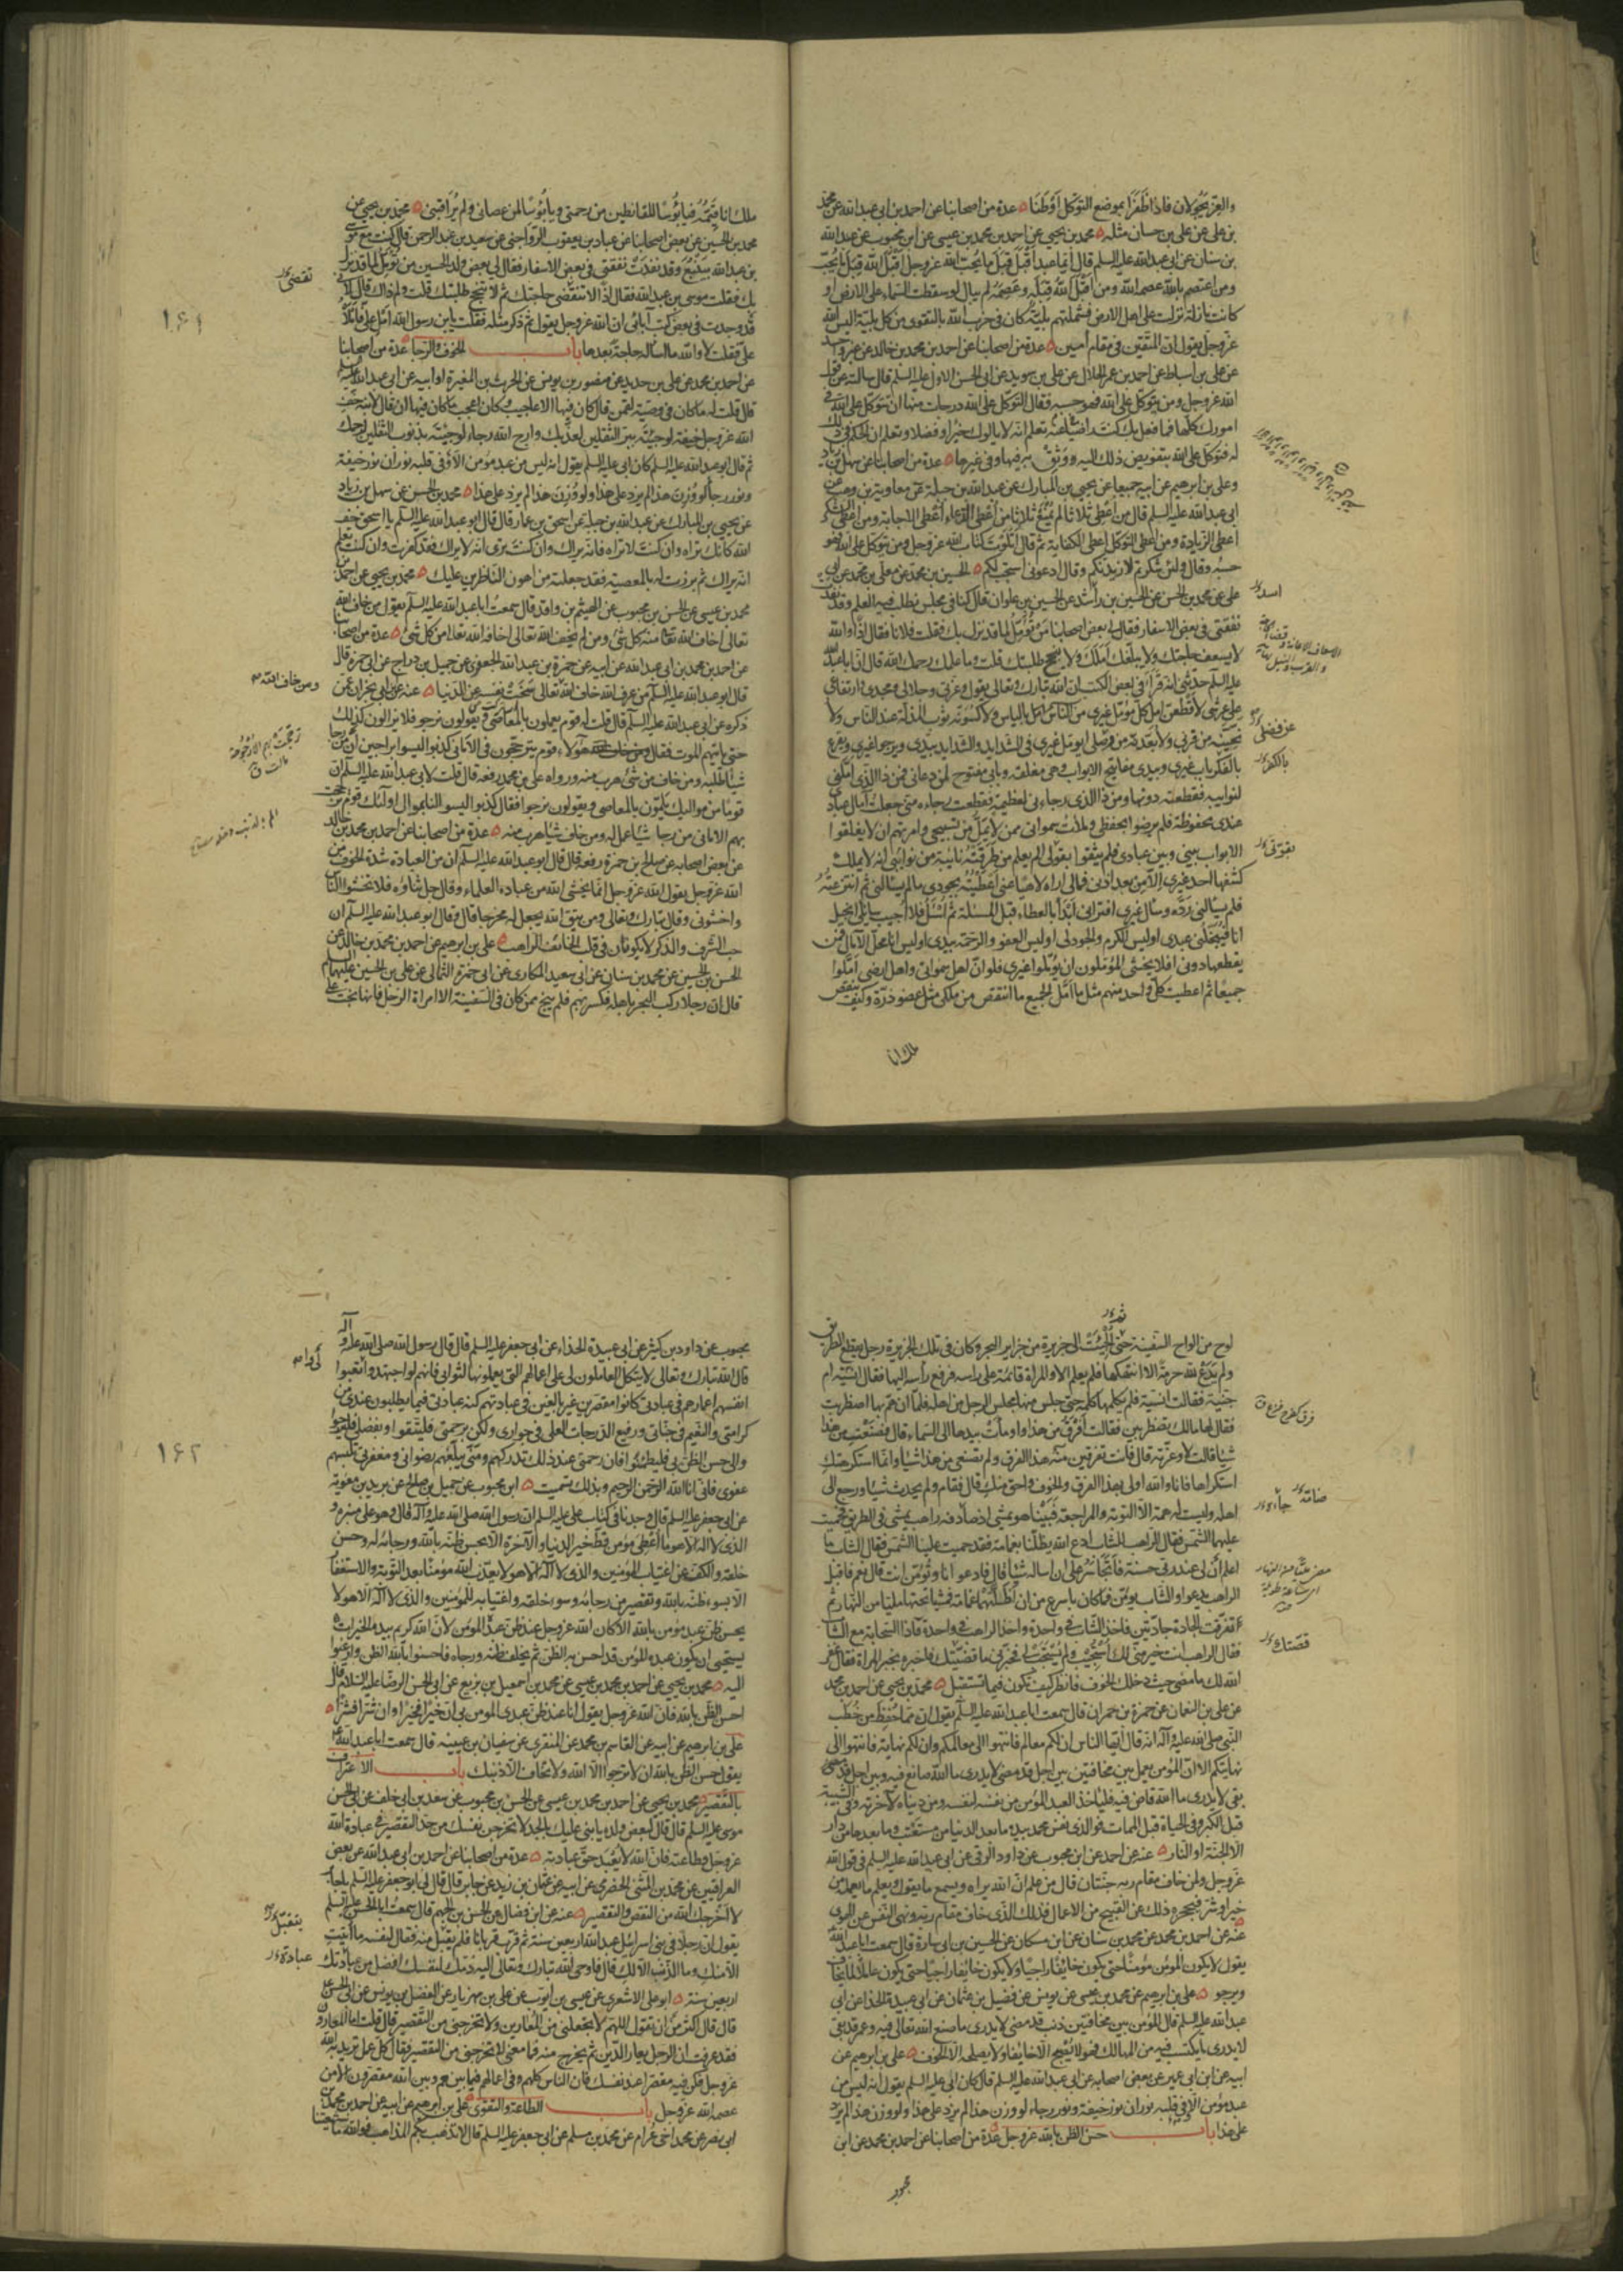 والعز يجولان فاذا ظفرا بموضع التوكل اوطنا عدة من اصحابنا عن احمد بن ابى عبد الله عن محمد
بن على عن على بن حسان مثله محمد بن يحيى عن احمد بن محمد بن عيسى عن ابن محبوب عن عبد الله
بن سنان عن ابى عبد الله عليه السلم قال ايما عبد اقبل قبل ما يحب الله عز وجل اقبل الله قبل ما يحب
ومن اعتصم بالله عصمه الله ومن اقبل الله قبله وعصمه لم يبال لو سقطت السماء على الارض او
كانت نازلة نزلت على اهل الارض فشملتهم بلية كان فى حزب الله بالتقوى من كل بلية اليس الله
عز وجل يقول ان المتقين فى مقام امين عدة من اصحابنا عن احمد بن محمد بن خالد عن غير واحد
عن على بن اسباط عن احمد بن عمر الحلال عن على بن سويد عن ابى الحسن الاول عليه السلم قال سالته عن قول
الله عز وجل ومن يتوكل على الله فهو حسبه فقال التوكل على الله درجات منها ان تتوكل على الله فى
امورك كلها فما فعل بك كنت راضيا عنه تعلم انه لا يالوك خيرا وفضلا وتعلم ان الحكم فى ذلك
له فتوكل على الله بتفويض ذلك اليه ووثق به فيها وفى غيرها عدة من اصحابنا عن سهل بن زياد
وعلى بن ابرهيم عن ابيه جميعا عن يحيى بن المبارك عن عبد الله بن جبلة عن معاوية بن وهب عن
ابى عبد الله عليه السلم قال من اعطى ثلاثا لم يمنع ثلاثا من اعطى الدعاء اعطى الاجابة ومن اعطى الشكر
اعطى الزيادة ومن اعطى التوكل اعطى الكفاية ثم قال اتلوت كتاب الله عز وجل ومن يتوكل على الله فهو
حسبه وقال ولئن شكرتم لازيدنكم وقال ادعونى استجب لكم الحسين بن محمد عن معلى بن محمد عن ابى
على عن محمد بن الحسن عن الحسين بن راشد عن الحسين بن علوان قال كنا فى مجلس نطلب فيه العلم وقد نفدت
نفقتى فى بعض الاسفار فقال لى بعض اصحابنا من تؤمل لما قد نزل بك فقلت فلانا فقال اذا والله
لا يسعف حاجتك ولا يبلغك املك ولا ينجح طلبتك قلت وما علمك رحمك الله قال ان ابا عبد الله
عليه السلم حدثنى انه قرا فى بعض الكتب ان الله تبارك وتعالى يقول وعزتى وجلالى ومجدى وارتفاعى
على عرشى لاقطعن امل كل مؤمل غيرى من الناس باليأس ولاكسونه ثوب المذلة عند الناس ولا
نحينه من قربى ولابعدنه من وصلى ايؤمل غيرى فى الشدايد والشدايد بيدى ويرجو غيرى ويقرع
بالفكر باب غيرى وبيدى مفاتيح الابواب وهى مغلقة وبابى مفتوح لمن دعانى فمن ذا الذى املنى
لنوايبه فقطعته دونها ومن ذا الذى رجانى لعظيمة فقطعت رجاءه منى جعلت آمال عبادى
عندى محفوظة فلم يرضوا بحفظى وملأت سمواتى ممن لا يمل من تسبيحى وامرتهم ان لا يغلقوا
الابواب بينى وبين عبادى فلم يثقوا بقولى الم يعلم من طرقته نائبة من نوائبى انه لا يملك
كشفها احد غيرى الا من بعد اذنى فمالى اراه لاهيا عنى اعطيته بجودى ما لم يسألنى ثم انتزعته
فلم يسألنى رده وسأل غيرى افترانى ابدأ بالعطاء قبل المسئلة ثم اسئل فلا اجيب سايلى ابخيل
انا فيبخلنى عبدى اوليس الكرم والجود لى اوليس العفو والرحمة بيدى اوليس انا محل الآمال فمن
يقطعها دونى افلا يخشى المؤملون ان يؤملوا غيرى فلو ان اهل سمواتى واهل ارضى املوا
جميعا ثم اعطيت كل واحد منهم مثل ما امل الجميع ما انتقص من ملكى مثل عضو ذرة وكيف ينقص
ملك انا
عز فضلى
ملك انا قيمه فيا بؤسا للقانطين من رحمتى ويا بؤسا لمن عصانى ولم يراقبنى محمد بن يحيى عن
محمد بن الحسين عن بعض اصحابنا عن عباد بن يعقوب الرواجنى عن سعيد بن عبد الرحمن قال كنت مع موسى
بن عبد الله بينبع وقد نفدت نفقتى فى بعض الاسفار فقال لى بعض ولد الحسين من تؤمل لما قد نزل
بك فقلت موسى بن عبد الله فقال اذا لا تقضى حاجتك ثم لا تنجح طلبتك قلت ولم ذاك قال لانى
قد وجدت فى بعض كتب آبائى ان الله عز وجل يقول ثم ذكر مثله فقلت يا بن رسول الله امل على فاملاه
على فقلت لا والله ما اساله حاجة بعدها باب الخوف والرجا عدة من اصحابنا
عن احمد بن محمد عن على بن حديد عن منصور بن يونس عن الحرث بن المغيرة او ابيه عن ابى عبد الله عليه السلم
قال قلت له ما كان فى وصية لقمن قال كان فيها الاعاجيب وكان اعجب ما كان فيها ان قال لابنه خف
الله عز وجل خيفة لو جئته ببر الثقلين لعذبك وارج الله رجاء لو جئته بذنوب الثقلين لرحمك
ثم قال ابو عبد الله عليه السلم كان ابى عليه السلم يقول انه ليس من عبد مؤمن الا وفى قلبه نوران نور خيفة
ونور رجاء لو وزن هذا لم يزد على هذا ولو وزن هذا لم يزد على هذا محمد بن الحسن عن سهل بن زياد
عن يحيى بن المبارك عن عبد الله بن جبلة عن اسحق بن عمار قال قال ابو عبد الله عليه السلم يا اسحق خف
الله كانك تراه وان كنت لا تراه فانه يراك وان كنت ترى انه لا يراك فقد كفرت وان كنت تعلم
انه يراك ثم برزت له بالمعصية فقد جعلته من اهون الناظرين عليك محمد بن يحيى عن احمد بن
محمد بن عيسى عن الحسن بن محبوب عن الهيثم بن واقد قال سمعت ابا عبد الله عليه السلم يقول من خاف الله
تعالى اخاف الله تعالى منه كل شئ ومن لم يخف الله تعالى اخافه الله تعالى من كل شئ عدة من اصحابنا
عن احمد بن محمد بن ابى عبد الله عن ابيه عن حمزة بن عبد الله الجعفرى عن جميل بن دراج عن ابى حمزة قال
قال ابو عبد الله عليه السلم من عرف الله خاف الله تعالى سخت نفسه عن الدنيا عنه عن ابن ابى نجران عمن
ذكره عن ابى عبد الله عليه السلم قال قلت له قوم يعملون بالمعاصى ويقولون نرجو فلا يزالون كذلك
حتى ياتيهم الموت فقال هؤلاء قوم يترجحون فى الامانى كذبوا ليسوا براجين ان من رجا
شيئا طلبه ومن خاف من شئ هرب منه ورواه على بن محمد رفعه قال قلت لابى عبد الله عليه السلم ان
قوما من مواليك يلمون بالمعاصى ويقولون نرجوا فقال كذبوا ليسوا لنا بموال اولئك قوم ترجحت
بهم الامانى من رجا شيئا عمل له ومن خاف شيئا هرب منه عدة من اصحابنا عن احمد بن محمد بن خالد
عن بعض اصحابه عن صالح بن حمزة رفعه قال قال ابو عبد الله عليه السلم ان من العبادة شدة الخوف من
الله عز وجل يقول الله عز وجل انما يخشى الله من عباده العلماء وقال جل ثناؤه فلا تخشوا الناس
واخشونى وقال تبارك وتعالى ومن يتق الله يجعل له مخرجا قال وقال ابو عبد الله عليه السلم ان
حب الشرف والذكر لا يكونان فى قلب الخائف الراهب على بن ابرهيم عن احمد بن محمد بن خالد عن
الحسن بن الحسين عن محمد بن سنان عن ابى سعيد المكارى عن ابى حمزة الثمالى عن على بن الحسين عليهما السلام
قال ان رجلا ركب البحر باهله فكسر بهم فلم ينج ممن كان فى السفينة الا امراة الرجل فانها نجت على
ومن خاف الله
١٦١
لوح من الواح السفينة حتى الجئت الى جزيرة من جزاير البحر وكان فى تلك الجزيرة رجل يقطع الطريق
ولم يدع لله حرمة الا انتهكها فلم يعلم الا والمراة قائمة على راسه فرفع رأسه اليها فقال انسية ام
جنية فقالت انسية فلم يكلمها كلمة حتى جلس منها مجلس الرجل من اهله فلما ان هم بها اضطربت
فقال لها مالك تضطربين فقالت افرق من هذا واومأت بيدها الى السماء قال فصنعت من هذا
شيئا قالت لا وعزته قال فانت تفرقين منه هذا الفرق ولم تصنعى من هذا شيئا وانما استكرهتك
استكراها فانا والله اولى بهذا الفرق والخوف واحق منك قال فقام ولم يحدث شيئا ورجع الى
اهله وليست له همة الا التوبة والمراجعة فبينا هو يمشى اذ صادفه راهب يمشى فى الطريق فحميت
عليهما الشمس فقال الراهب للشاب ادع الله يظلنا بغمامة فقد حميت علينا الشمس فقال الشاب ما
اعلم ان لى عند ربى حسنة فاتجاسر على ان اساله شيئا قال فادعو انا وتؤمن انت قال نعم فاقبل
الراهب يدعو والشاب يؤمن فما كان باسرع من ان اظلتهما غمامة فمشيا تحتها مليا من النهار ثم
تفرقت الجادة جادتين فاخذ الشاب فى واحدة واخذ الراهب فى واحدة فاذا السحابة مع الشاب
فقال الراهب انت خير منى لك استجيب ولم يستجب لى فخبرنى ما قصتك فاخبره بخبر المراة فقال غفر
الله لك ما مضى حيث دخلك الخوف فانظر كيف تكون فيما تستقبل محمد بن يحيى عن احمد بن محمد
عن على بن النعمان عن حمزة بن حمران قال سمعت ابا عبد الله عليه السلم يقول ان مما حفظ من خطب
النبى صلى الله عليه وآله انه قال ايها الناس ان لكم معالم فانتهوا الى معالمكم وان لكم نهاية فانتهوا الى
نهايتكم الا ان المؤمن يعمل بين مخافتين بين اجل قد مضى لا يدرى ما الله صانع فيه وبين اجل قد
بقى لا يدرى ما الله قاض فيه فلياخذ العبد المؤمن من نفسه لنفسه ومن دنياه لآخرته وفى الشبيبة
قبل الكبر وفى الحياة قبل الممات فوالذى نفس محمد بيده ما بعد الدنيا من مستعتب وما بعدها من دار
الا الجنة او النار عنه عن احمد عن ابن محبوب عن داود الرقى عن ابى عبد الله عليه السلم فى قول الله
عز وجل ولمن خاف مقام ربه جنتان قال من علم ان الله يراه ويسمع ما يقول ويعلم ما يعمله من
خير او شر فيحجزه ذلك عن القبيح من الاعمال فذلك الذى خاف مقام ربه ونهى النفس عن الهوى
عنه عن احمد بن محمد عن محمد بن سنان عن ابن مسكان عن الحسين بن ابى سارة قال سمعت ابا عبد الله
يقول لا يكون المؤمن مؤمنا حتى يكون خائفا راجيا ولا يكون خائفا راجيا حتى يكون عاملا لما يخاف
ويرجو على بن ابرهيم عن محمد بن عيسى عن يونس عن فضيل بن عثمان عن ابى عبيدة الحذا عن ابى
عبد الله عليه السلم قال المؤمن بين مخافتين ذنب قد مضى لا يدرى ما صنع الله تعالى فيه وعمر قد بقى
لا يدرى ما يكتسب فيه من المهالك فهو لا يصبح الا خائفا ولا يصلحه الا الخوف على بن ابرهيم عن
ابيه عن ابن ابى عمير عن بعض اصحابه عن ابى عبد الله عليه السلم قال كان ابى عليه السلم يقول انه ليس من
عبد مؤمن الا وفى قلبه نوران نور خيفة ونور رجاء لو وزن هذا لم يزد على هذا ولو وزن هذا لم يزد
على هذا باب حسن الظن بالله عز وجل عدة من اصحابنا عن احمد بن محمد عن ابن
محبوب
قصتك
محبوب عن داود بن كثير عن ابى عبيدة الحذاء عن ابى جعفر عليه السلم قال قال رسول الله صلى الله عليه وآله
قال الله تبارك وتعالى لا يتكل العاملون لى على اعمالهم التى يعملونها لثوابى فانهم لو اجتهدوا واتعبوا
انفسهم اعمارهم فى عبادتى كانوا مقصرين غير بالغين فى عبادتهم كنه عبادتى فيما يطلبون عندى من
كرامتى والنعيم فى جناتى ورفيع الدرجات العلى فى جوارى ولكن برحمتى فليثقوا وبفضلى فليرجوا
والى حسن الظن بى فليطمئنوا فان رحمتى عند ذلك تدركهم ومنى يبلغهم رضوانى ومغفرتى تلبسهم
عفوى فانى انا الله الرحمن الرحيم وبذلك تسميت ابن محبوب عن جميل بن صالح عن بريد بن معوية
عن ابى جعفر عليه السلم قال وجدنا فى كتاب على عليه السلم ان رسول الله صلى الله عليه وآله قال وهو على منبره و
الذى لا اله الا هو ما اعطى مؤمن قط خير الدنيا والآخرة الا بحسن ظنه بالله ورجائه له وحسن
خلقه والكف عن اغتياب المؤمنين والذى لا اله الا هو لا يعذب الله مؤمنا بعد التوبة والاستغفار
الا بسوء ظنه بالله وتقصير من رجائه وسوء خلقه واغتيابه للمؤمنين والذى لا اله الا هو لا
يحسن ظن عبد مؤمن بالله الا كان الله عز وجل عند ظن عبده المؤمن لان الله كريم بيده الخيرات
يستحيى ان يكون عبده المؤمن قد احسن به الظن ثم يخلف ظنه ورجاه فاحسنوا بالله الظن وارغبوا
اليه محمد بن يحيى عن احمد بن محمد بن عيسى عن محمد بن اسمعيل بن بزيع عن ابى الحسن الرضا عليه السلام قال
احسن الظن بالله فان الله عز وجل يقول انا عند ظن عبدى المؤمن بى ان خيرا فخيرا وان شرا فشرا
على بن ابرهيم عن ابيه عن القاسم بن محمد عن المنقرى عن سفيان بن عيينه قال سمعت ابا عبد الله
يقول حسن الظن بالله ان لا ترجوا الا الله ولا تخاف الا ذنبك باب الاعتراف
بالتقصير محمد بن يحيى عن احمد بن محمد بن عيسى عن الحسن بن محبوب عن سعد بن ابى خلف عن ابى الحسن
موسى عليه السلم قال قال لبعض ولده يا بنى عليك بالجد لا تخرجن نفسك من حد التقصير فى عبادة الله
عز وجل وطاعته فان الله لا يعبد حق عبادته عدة من اصحابنا عن احمد بن ابى عبد الله عن بعض
العراقيين عن محمد بن المثنى الحضرمى عن ابيه عن عثمان بن زيد عن جابر قال قال لى ابو جعفر عليه السلم يا جابر
لا اخرجك الله من النقص والتقصير عنه عن ابن فضال عن الحسن بن الجهم قال سمعت ابا الحسن عليه السلم
يقول ان رجلا فى بنى اسرائيل عبد الله اربعين سنة ثم قرب قربانا فلم يقبل منه فقال لنفسه ما اتيت
الا منك وما الذنب الا لك قال فاوحى الله تبارك وتعالى اليه ذمك لنفسك افضل من عبادتك
اربعين سنة ابو على الاشعرى عن عيسى بن ايوب عن على بن مهزيار عن الفضل بن يونس عن ابى الحسن
قال قال اكثر من ان تقول اللهم لا تجعلنى من المعارين ولا تخرجنى من التقصير قال قلت اما المعارون
فقد عرفت ان الرجل يعار الدين ثم يخرج منه فما معنى لا تخرجنى من التقصير فقال كل عمل تريد به الله
عز وجل فكن فيه مقصرا عند نفسك فان الناس كلهم فى اعمالهم فيما بينهم وبين الله مقصرون الا من
عصمه الله عز وجل باب الطاعة والتقوى على بن ابرهيم عن ابيه عن احمد بن محمد بن
ابى نصر عن محمد اخى عرام عن محمد بن مسلم عن ابى جعفر عليه السلم قال لا تذهب بكم المذاهب فوالله ما شيعتنا
١٦٢